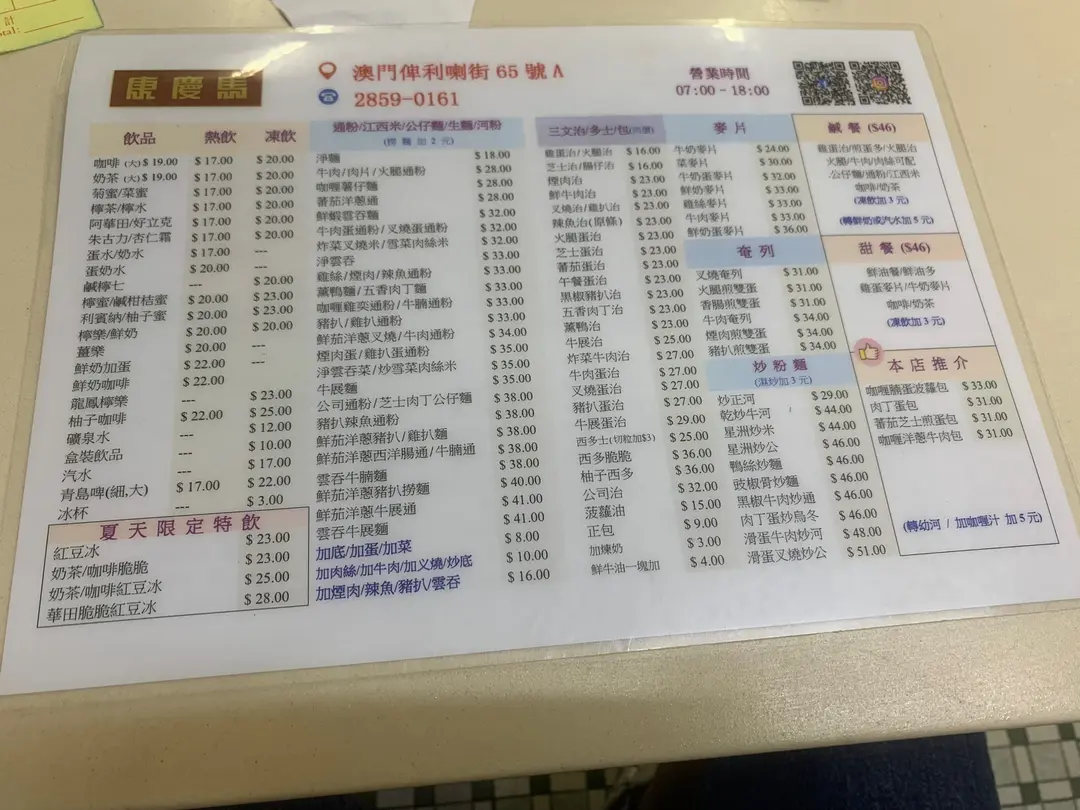 計
馬慶康
澳門俾利喇街 65 號 A
2859-0161
營業時間
07:00 - 18:00
飲品 熱飲 凍飲
咖啡 (大) $ 19.00 $ 17.00 $ 20.00
奶茶 (大) $ 19.00 $ 17.00 $ 20.00
菊蜜/菜蜜 $ 17.00 $ 20.00
檸茶/檸水 $ 17.00 $ 20.00
阿華田/好立克 $ 17.00 $ 20.00
朱古力/杏仁霜 $ 17.00 $ 20.00
蛋水/奶水 $ 17.00 ---
蛋奶水 $ 20.00 ---
鹹檸七 --- $ 20.00
檸蜜/鹹柑桔蜜 $ 20.00 $ 23.00
利賓納/柚子蜜 $ 20.00 $ 23.00
檸樂/鮮奶 $ 20.00 $ 20.00
薑樂 $ 20.00 ---
鮮奶加蛋 $ 22.00 ---
鮮奶咖啡 $ 22.00
龍鳳檸樂 --- $ 23.00
柚子咖啡 $ 22.00 $ 25.00
礦泉水 --- $ 12.00
盒裝飲品 --- $ 10.00
汽水 --- $ 17.00
青島啤(細,大) $ 17.00 $ 22.00
冰杯 $ 3.00
夏天限定特飲
紅豆冰 $ 23.00
奶茶/咖啡脆脆 $ 23.00
奶茶/咖啡紅豆冰 $ 25.00
華田脆脆紅豆冰 $ 28.00
通粉/江西米/公仔麵/生麵/河粉
(撈麵加 2 元)
淨麵 $ 18.00
牛肉/肉片/火腿通粉 $ 28.00
咖喱薯仔麵 $ 28.00
蕃茄洋蔥通 $ 28.00
鮮蝦雲吞麵 $ 32.00
牛肉蛋通粉/叉燒蛋通粉 $ 32.00
炸菜叉燒米/雪菜肉絲米 $ 32.00
淨雲吞 $ 33.00
雞絲/煙肉/辣魚通粉 $ 33.00
薰鴨麵/五香肉丁麵 $ 33.00
咖喱雞奕通粉/牛腩通粉 $ 33.00
豬扒/雞扒通粉 $ 33.00
鮮茄洋蔥叉燒/牛肉通粉 $ 34.00
煙肉蛋/雞扒蛋通粉 $ 35.00
淨雲吞菜/炒雪菜肉絲米 $ 35.00
牛展麵 $ 35.00
公司通粉/芝士肉丁公仔麵 $ 38.00
豬扒辣魚通粉 $ 38.00
鮮茄洋蔥豬扒/雞扒麵 $ 38.00
鮮茄洋蔥西洋腸通/牛腩通 $ 38.00
雲吞牛腩麵 $ 40.00
鮮茄洋蔥豬扒撈麵 $ 40.00
鮮茄洋蔥牛展通 $ 41.00
雲吞牛展麵 $ 41.00
加底/加蛋/加菜 $ 8.00
加肉絲/加牛肉/加叉燒/炒底 $ 10.00
加煙肉/辣魚/豬扒/雲吞 $ 16.00
三文治/多士/包(同價)
雞蛋治/火腿治 $ 16.00
芝士治/腸仔治 $ 16.00
煙肉治 $ 23.00
鮮牛肉治 $ 23.00
叉燒治/雞扒治 $ 23.00
辣魚治(原條) $ 23.00
火腿蛋治 $ 23.00
芝士蛋治 $ 23.00
蕃茄蛋治 $ 23.00
午餐蛋治 $ 23.00
黑椒豬扒治 $ 23.00
五香肉丁治 $ 23.00
薰鴨治 $ 23.00
牛展治 $ 25.00
炸菜牛肉治 $ 27.00
牛肉蛋治 $ 27.00
叉燒蛋治 $ 27.00
豬扒蛋治 $ 27.00
牛展蛋治 $ 29.00
西多士(切粒加$3) $ 25.00
西多脆脆 $ 36.00
柚子西多 $ 36.00
公司治 $ 32.00
菠蘿油 $ 15.00
正包 $ 9.00
加煉奶 $ 3.00
鮮牛油一塊加 $ 4.00
麥片
牛奶麥片 $ 24.00
菜麥片 $ 30.00
牛奶蛋麥片 $ 32.00
鮮奶麥片 $ 33.00
雞絲麥片 $ 33.00
牛肉麥片 $ 33.00
鮮奶蛋麥片 $ 36.00
奄列
叉燒奄列 $ 31.00
火腿煎雙蛋 $ 31.00
香腸煎雙蛋 $ 31.00
牛肉奄列 $ 34.00
煙肉煎雙蛋 $ 34.00
豬扒煎雙蛋 $ 34.00
炒粉麵
(濕炒加 3 元)
炒正河 $ 29.00
乾炒牛河 $ 44.00
星洲炒米 $ 44.00
星洲炒公 $ 46.00
鴨絲炒麵 $ 46.00
豉椒骨炒麵 $ 46.00
黑椒牛肉炒通 $ 46.00
肉丁蛋炒烏冬 $ 46.00
滑蛋牛肉炒河 $ 48.00
滑蛋叉燒炒公 $ 51.00
鹹餐 ($46)
雞蛋治/煎蛋多/火腿治
火腿/牛肉/肉絲可配
公仔麵/通粉/江西米
咖啡/奶茶
(凍飲加 3 元)
(轉鮮奶或汽水加 5 元)
甜餐 ($46)
鮮油餐/鮮油多
雞蛋麥片/牛奶麥片
咖啡/奶茶
(凍飲加 3 元)
本店推介
咖喱腩蛋菠蘿包 $ 33.00
肉丁蛋包 $ 31.00
蕃茄芝士煎蛋包 $ 31.00
咖喱洋蔥牛肉包 $ 31.00
(轉幼河 / 加咖喱汁 加 5 元)